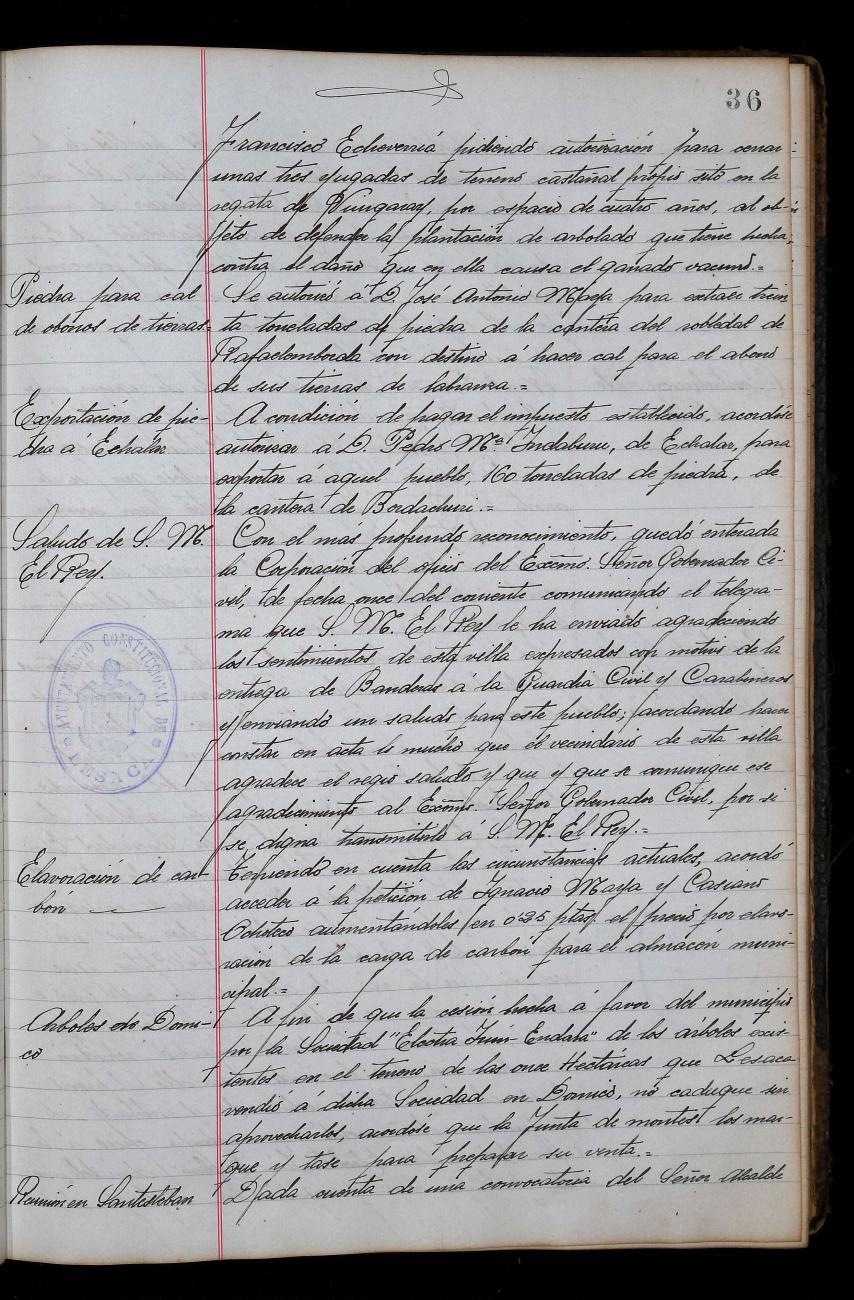 36
Francisco Echeverriá pidiendo autorización para cerrar
unas tres yugadas de terreno castañal propio sito en la
regata de por espacio de cuatro años, al ob-
jeto de defender la plantación de arbolado que tiene hecha,
contra el daño que en ella causa el ganado vacuno.=
Piedra para cal
de abonos de tierras.
Se autorizó á D. José Antonio Maya para extraer trein
ta toneladas de piedra de la cantera del robledal de
Rafaelemborda con destino á hacer cal para el abono
de sus tierras de labranza.=
Exportación de pie-
dra á Echalar
A condición de pagar el impuesto establecido, acordóse
autorizar á D. Pedro Mª Indaburu, de Echalar, para
exportar á aquel pueblo, 160 toneladas de piedra, de
la cantera de Bordachuri.=
Saludo de S. M.
El Rey.
Con el más profundo reconocimiento, quedó enterada
la Corporación del oficio del Excmo. Señor Gobernador Ci-
vil, de fecha once del corriente comunicando el telegra-
ma que S. M. El Rey le ha enviado agradeciendo
los sentimientos de esta villa expresados con motivo de la
entrega de Banderas á la Guardia Civil y Carabineros
y enviando un saludo para este pueblo; acordando hacer
constar en acta lo mucho que el vecindario de esta villa
agradece el regio saludo y que y que se comunique ese
agradecimiento al Excmo. Señor Gobernador Civil, por si
se digna transmitirlo á S. M. El Rey.=
AYUNTAMIENTO CONSTITUCIONAL DE
LESACA
Elavoración de car-
bón
Teniendo en cuenta las circunstancias actuales, acordó
acceder á la petición de Ignacio Maya y Casiano
Ochoteco aumentándoles en 0'25 ptas. el precio por elavo-
ración de la carga de carbón para el almacén muni-
cipal.=
Arboles de Domi-
co
A fin de que la cesión hecha á favor del municipio
por la Sociedad "Electra Irún-Endara" de los árboles exis-
tentes en el terreno de las once Hectáreas que Lesaca
vendió á dicha Sociedad en Domico, no caduque sin
aprovecharlos, acordóse que la Junta de montes los mar-
que y tase para preparar su venta.=
Reunión en Santesteban
Dada cuenta de una convocatoria del Señor Alcalde